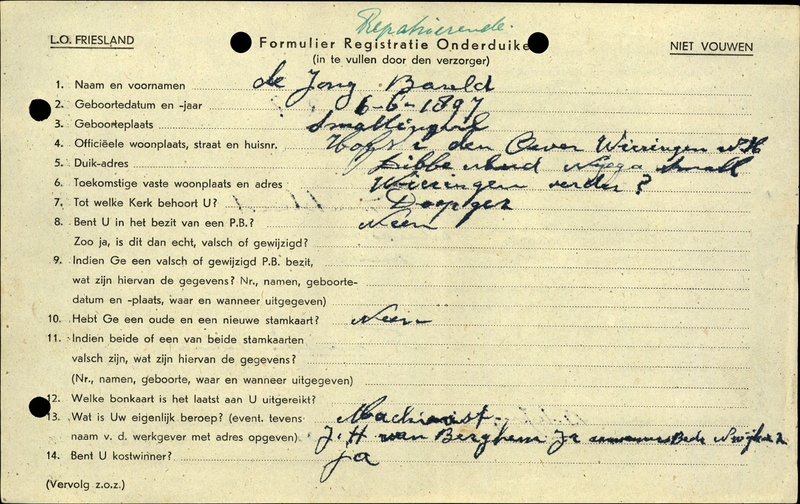 Repatrieerende.
L.O. FRIESLAND
Formulier Registratie Onderduike
NIET VOUWEN
(in te vullen door den verzorger)
1. Naam en voornamen de Jong Bareld
2. Geboortedatum en -jaar 6-6-1897
3. Geboorteplaats Smallingerl
4. Officiëele woonplaats, straat en huisnr. den Oever Wieringen N.H
5. Duik-adres Nijega Small
6. Toekomstige vaste woonplaats en adres Wieringen verder?
7. Tot welke Kerk behoort U? Doopgez
8. Bent U in het bezit van een P.B.? Neen
Zoo ja, is dit dan echt, valsch of gewijzigd?
9. Indien Ge een valsch of gewijzigd P.B. bezit,
wat zijn hiervan de gegevens? Nr., namen, geboorte-
datum en -plaats, waar en wanneer uitgegeven)
10. Hebt Ge een oude en een nieuwe stamkaart? Neen
11. Indien beide of een van beide stamkaarten
valsch zijn, wat zijn hiervan de gegevens?
(Nr., namen, geboorte, waar en wanneer uitgegeven)
12. Welke bonkaart is het laatst aan U uitgereikt?
13. Wat is Uw eigenlijk beroep? (event. tevens Machinist
naam v. d. werkgever met adres opgeven) J. H van Berghem Jr
14. Bent U kostwinner? ja
(Vervolg z.o.z.)